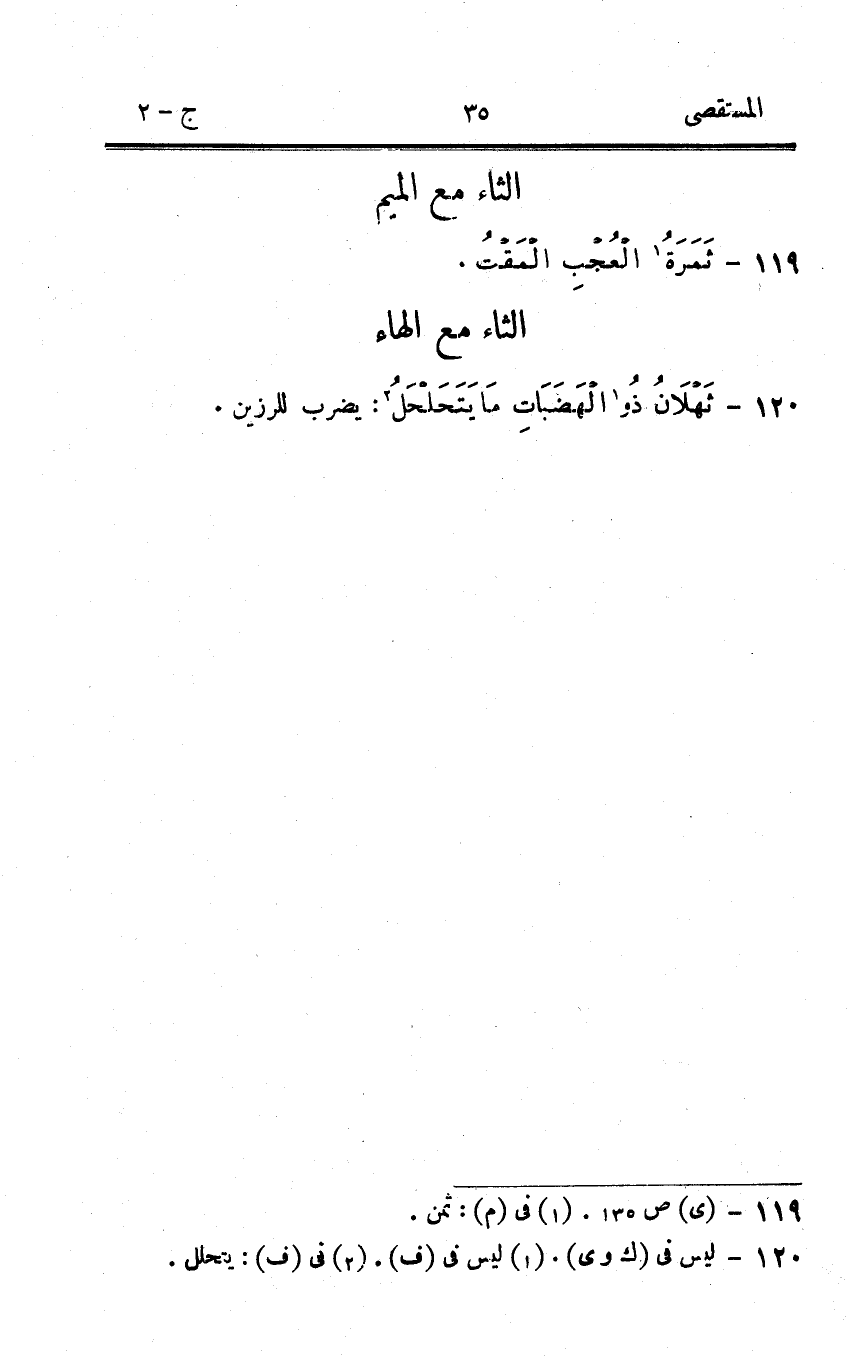 المستقصى ٣٥ ج - ٢
الثاء مع الميم
١١٩ - ثَمَرَةُ١ الْعُجْبِ الْمَقْتُ .
الثاء مع الهاء
١٢٠ - ثَهْلَانُ ذُو١ الْهَضَبَاتِ مَا يَتَحَلْحَلُ٢ : يضرب للرزين .
١١٩ - (ى) ص ١٣٥ . (١) فى (م) : ثمن .
١٢٠ - ليس فى (ك و ى) . (١) ليس فى (ف) . (٢) فى (ف) : يتحلل .